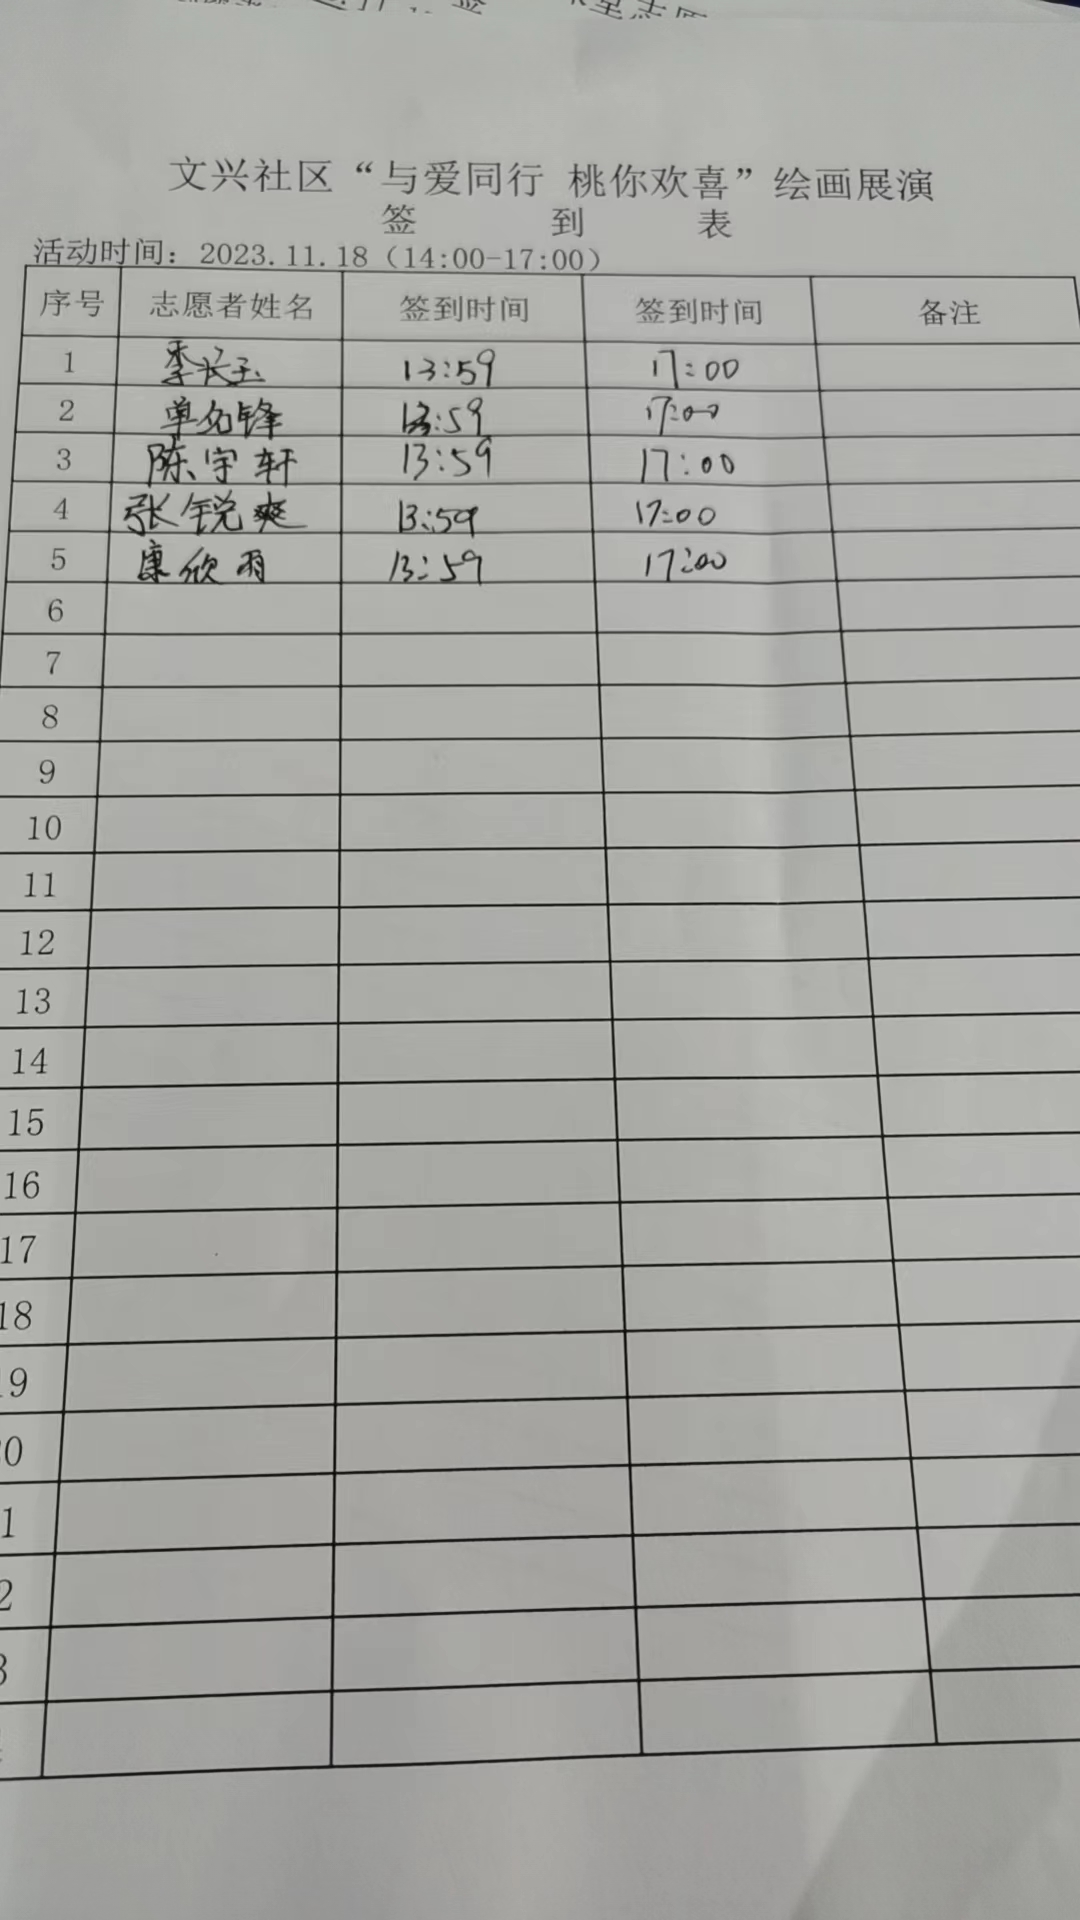 文兴社区“与爱同行 桃你欢喜”绘画展演
签 到 表
活动时间：2023.11.18（14:00-17:00）
序号 志愿者姓名 签到时间 签到时间 备注
1 李长玉 13:59 17:00
2 单名锋 13:59 17:00
3 陈宇轩 13:59 17:00
4 张锐爽 13:59 17:00
5 康欣雨 13:59 17:00
6
7
8
9
10
11
12
13
14
15
16
17
18
19
0
1
2
3